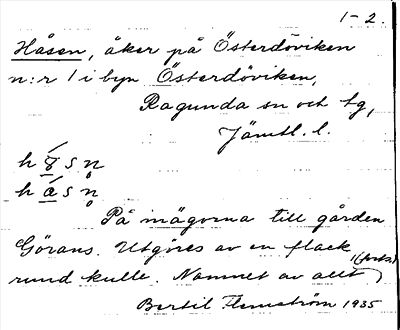 1-2.
Håsen, åker på Österdöviken
n:r 1 i byn Österdöviken,
Ragunda sn och tg,
Jämtl. l.
h s n̥
h a s n̥
På inägorna till gården
Görans. Utgöres av en flack
rund kulle. Namnet av allt (forts.)
Bertil Flemström 1935